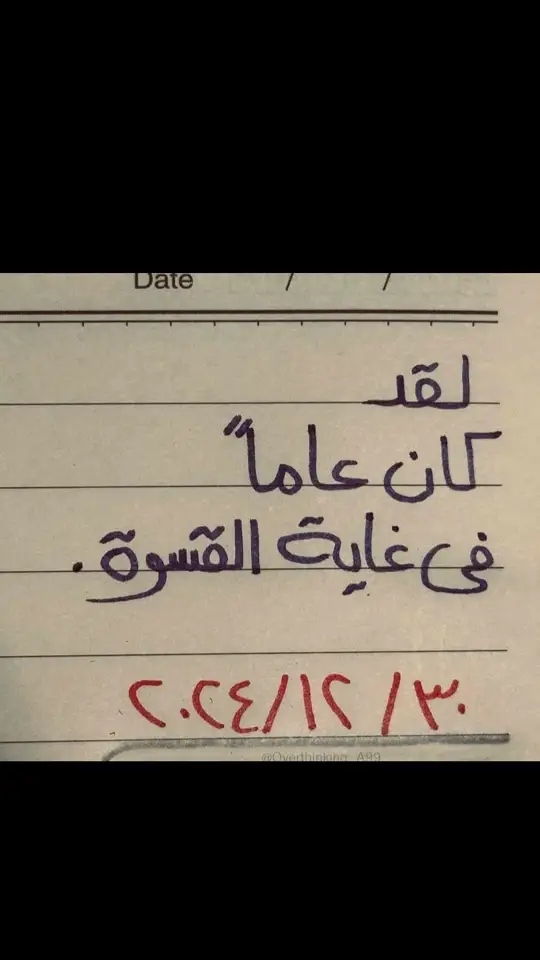 Date / /
لقد
كان عاماً
في غاية القسوة.
٣٠/١٢/٢٠٢٤
@Overthinking_A99